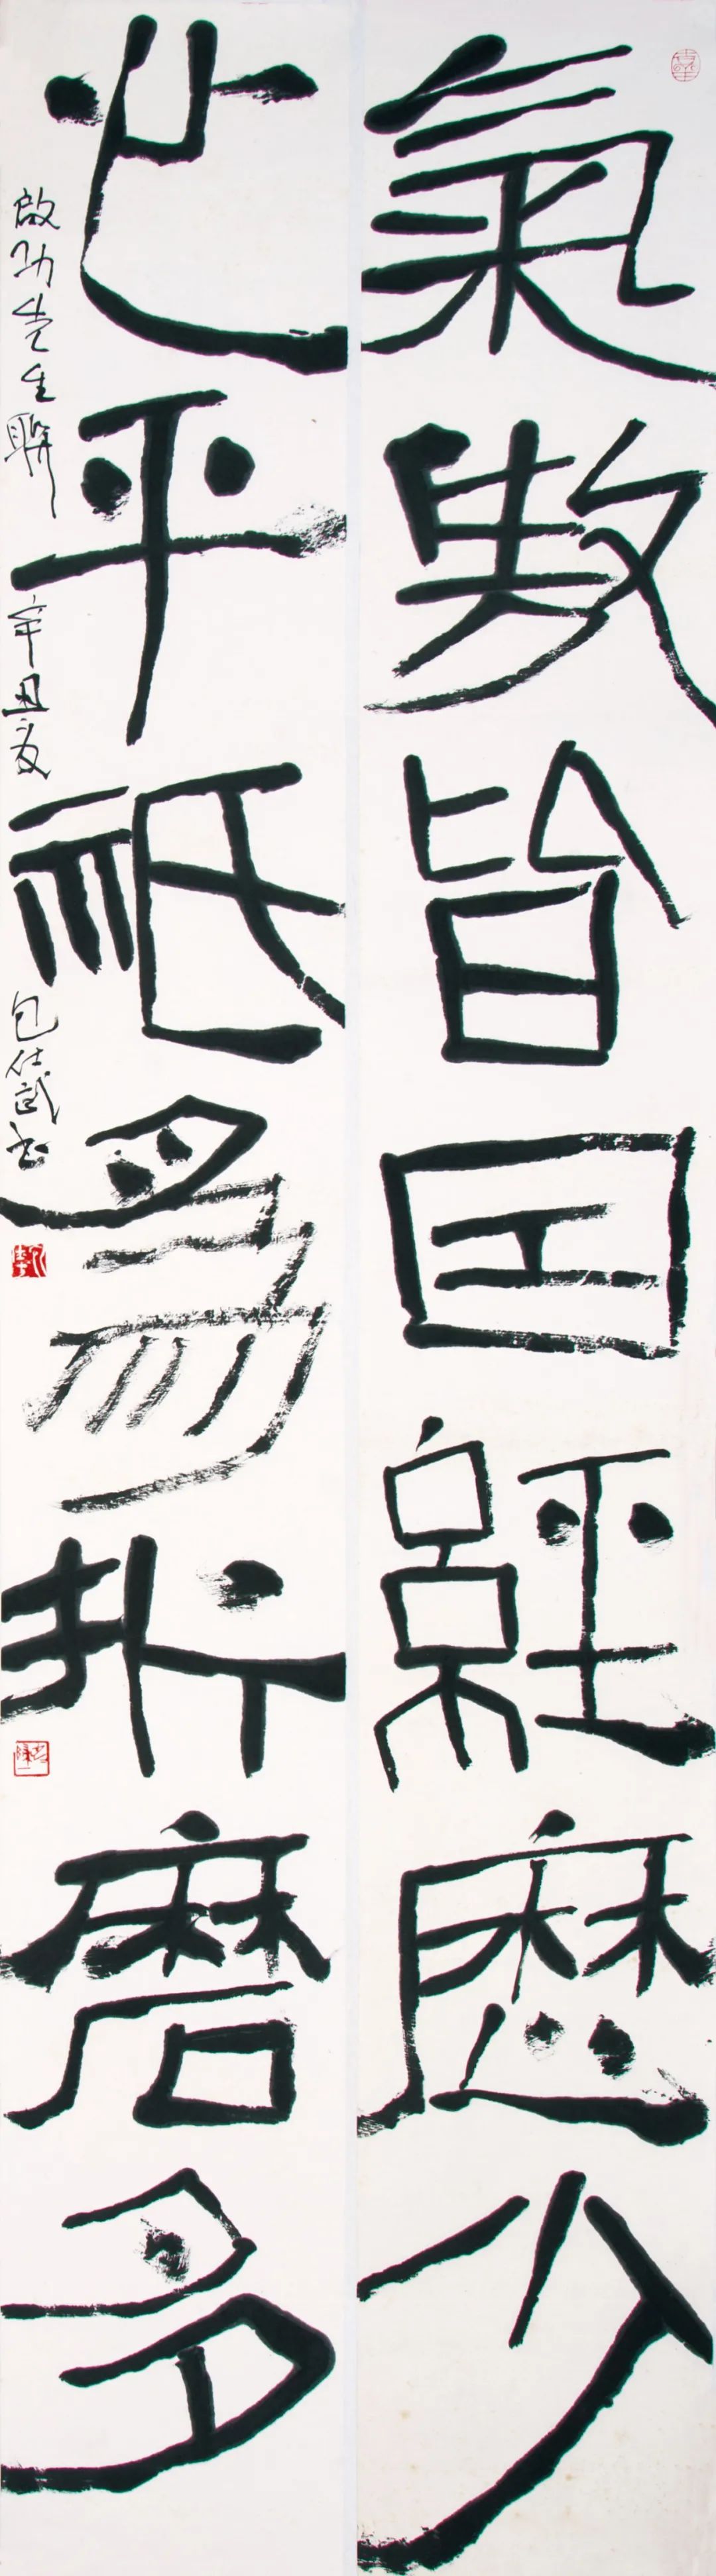 氣傲皆因經歷少
心平祇為折磨多
啟功先生聯 辛丑夏 包仕武書